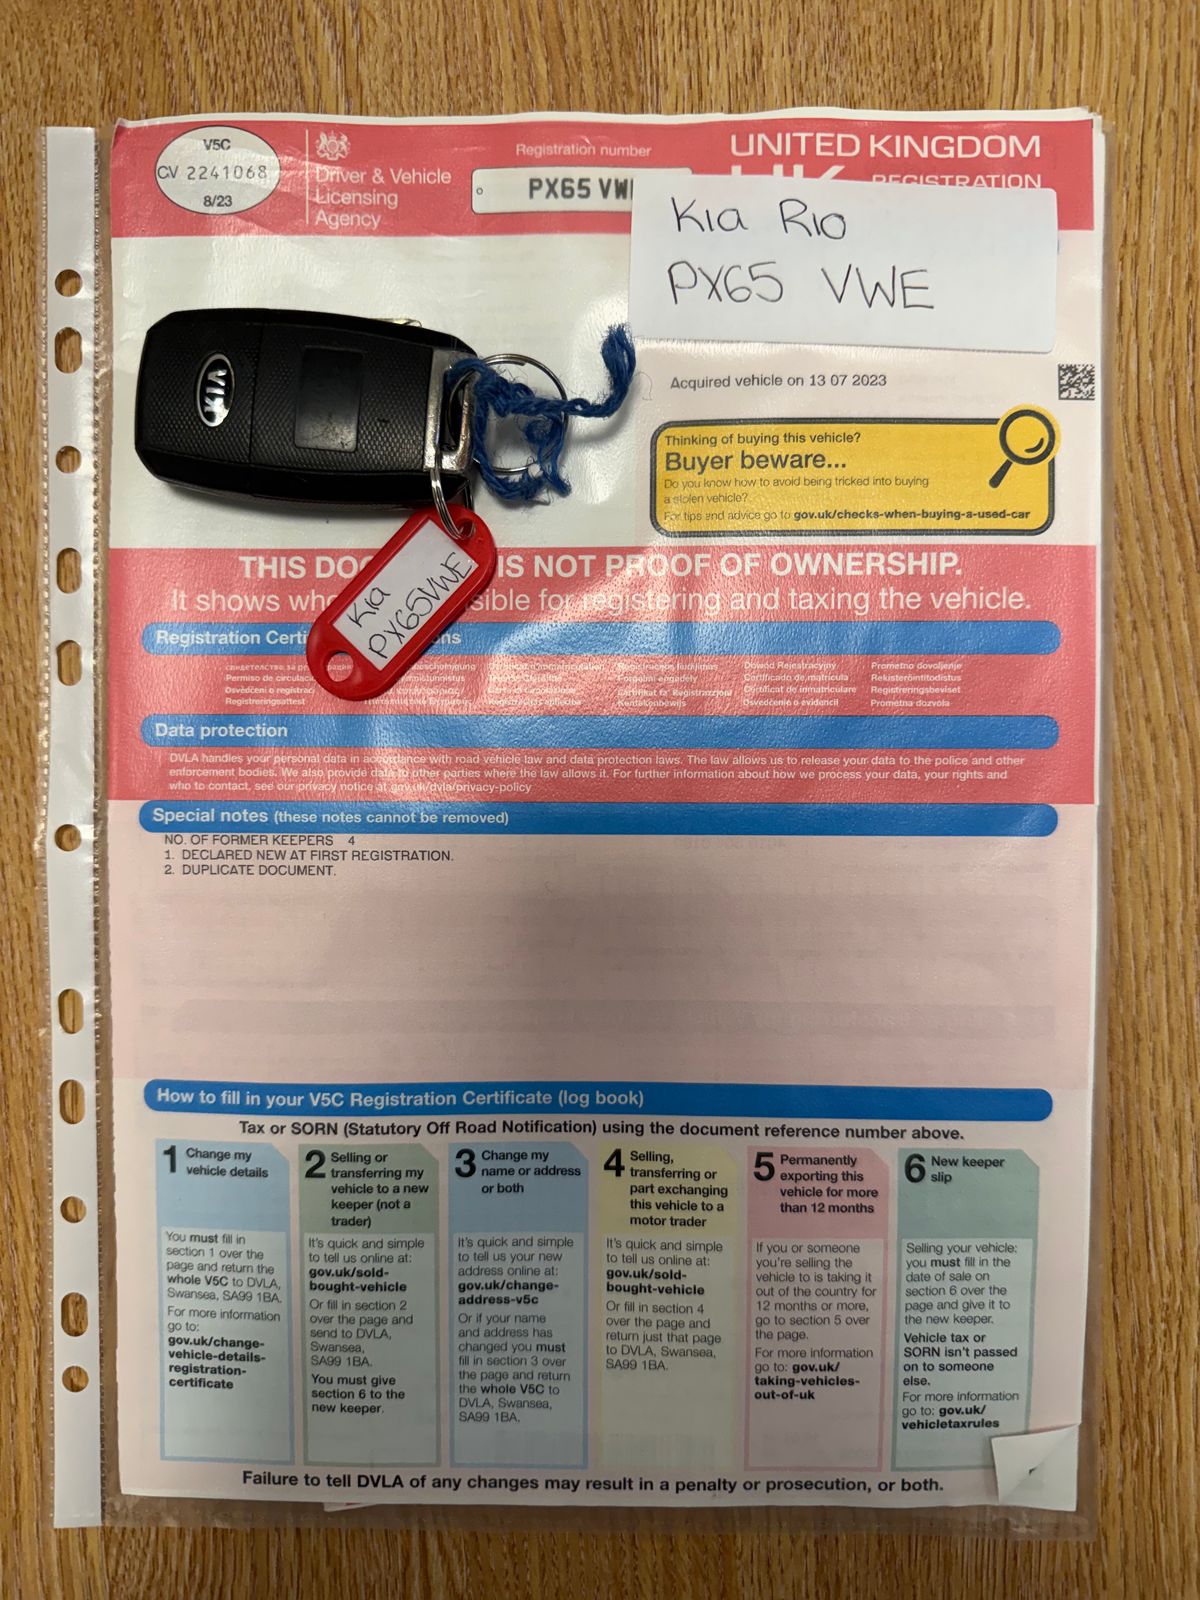 V5C
CV 2241068
8/23
Driver & Vehicle
Licensing
Agency
Registration number
PX65 VW
UNITED KINGDOM
REGISTRATION
Kia Rio
PX65 VWE
KIA
Acquired vehicle on 13 07 2023
Thinking of buying this vehicle?
Buyer beware...
Do you know how to avoid being tricked into buying
a stolen vehicle?
For tips and advice go to gov.uk/checks-when-buying-a-used-car
THIS DOC IS NOT PROOF OF OWNERSHIP.
It shows who sible for registering and taxing the vehicle.
Kia
PX65VWE
Registration Certi ns
Dowód Rejestracyjny Prometno dovoljenje
Permiso de circulac Certificado de matricula Rekisteröintitodistus
Osvědčení o registrac Certifikat ta' Reġistrazzjoni Certificat de inmatriculare Registreringsbeviset
Registreringsattest Kentekenbewijs Osvedčenie o evidencii Prometna dozvola
Data protection
DVLA handles your personal data in accordance with road vehicle law and data protection laws. The law allows us to release your data to the police and other
enforcement bodies. We also provide data to other parties where the law allows it. For further information about how we process your data, your rights and
who to contact, see our privacy notice at gov.uk/dvla/privacy-policy
Special notes (these notes cannot be removed)
NO. OF FORMER KEEPERS 4
1. DECLARED NEW AT FIRST REGISTRATION.
2. DUPLICATE DOCUMENT.
How to fill in your V5C Registration Certificate (log book)
Tax or SORN (Statutory Off Road Notification) using the document reference number above.
1 Change my
vehicle details
You must fill in
section 1 over the
page and return the
whole V5C to DVLA,
Swansea, SA99 1BA.
For more information
go to:
gov.uk/change-
vehicle-details-
registration-
certificate
2 Selling or
transferring my
vehicle to a new
keeper (not a
trader)
It's quick and simple
to tell us online at:
gov.uk/sold-
bought-vehicle
Or fill in section 2
over the page and
send to DVLA,
Swansea,
SA99 1BA.
You must give
section 6 to the
new keeper.
3 Change my
name or address
or both
It's quick and simple
to tell us your new
address online at:
gov.uk/change-
address-v5c
Or if your name
and address has
changed you must
fill in section 3 over
the page and return
the whole V5C to
DVLA, Swansea,
SA99 1BA.
4 Selling,
transferring or
part exchanging
this vehicle to a
motor trader
It's quick and simple
to tell us online at:
gov.uk/sold-
bought-vehicle
Or fill in section 4
over the page and
return just that page
to DVLA, Swansea,
SA99 1BA.
5 Permanently
exporting this
vehicle for more
than 12 months
If you or someone
you're selling the
vehicle to is taking it
out of the country for
12 months or more,
go to section 5 over
the page.
For more information
go to: gov.uk/
taking-vehicles-
out-of-uk
6 New keeper
slip
Selling your vehicle:
you must fill in the
date of sale on
section 6 over the
page and give it to
the new keeper.
Vehicle tax or
SORN isn't passed
on to someone
else.
For more information
go to: gov.uk/
vehicletaxrules
Failure to tell DVLA of any changes may result in a penalty or prosecution, or both.